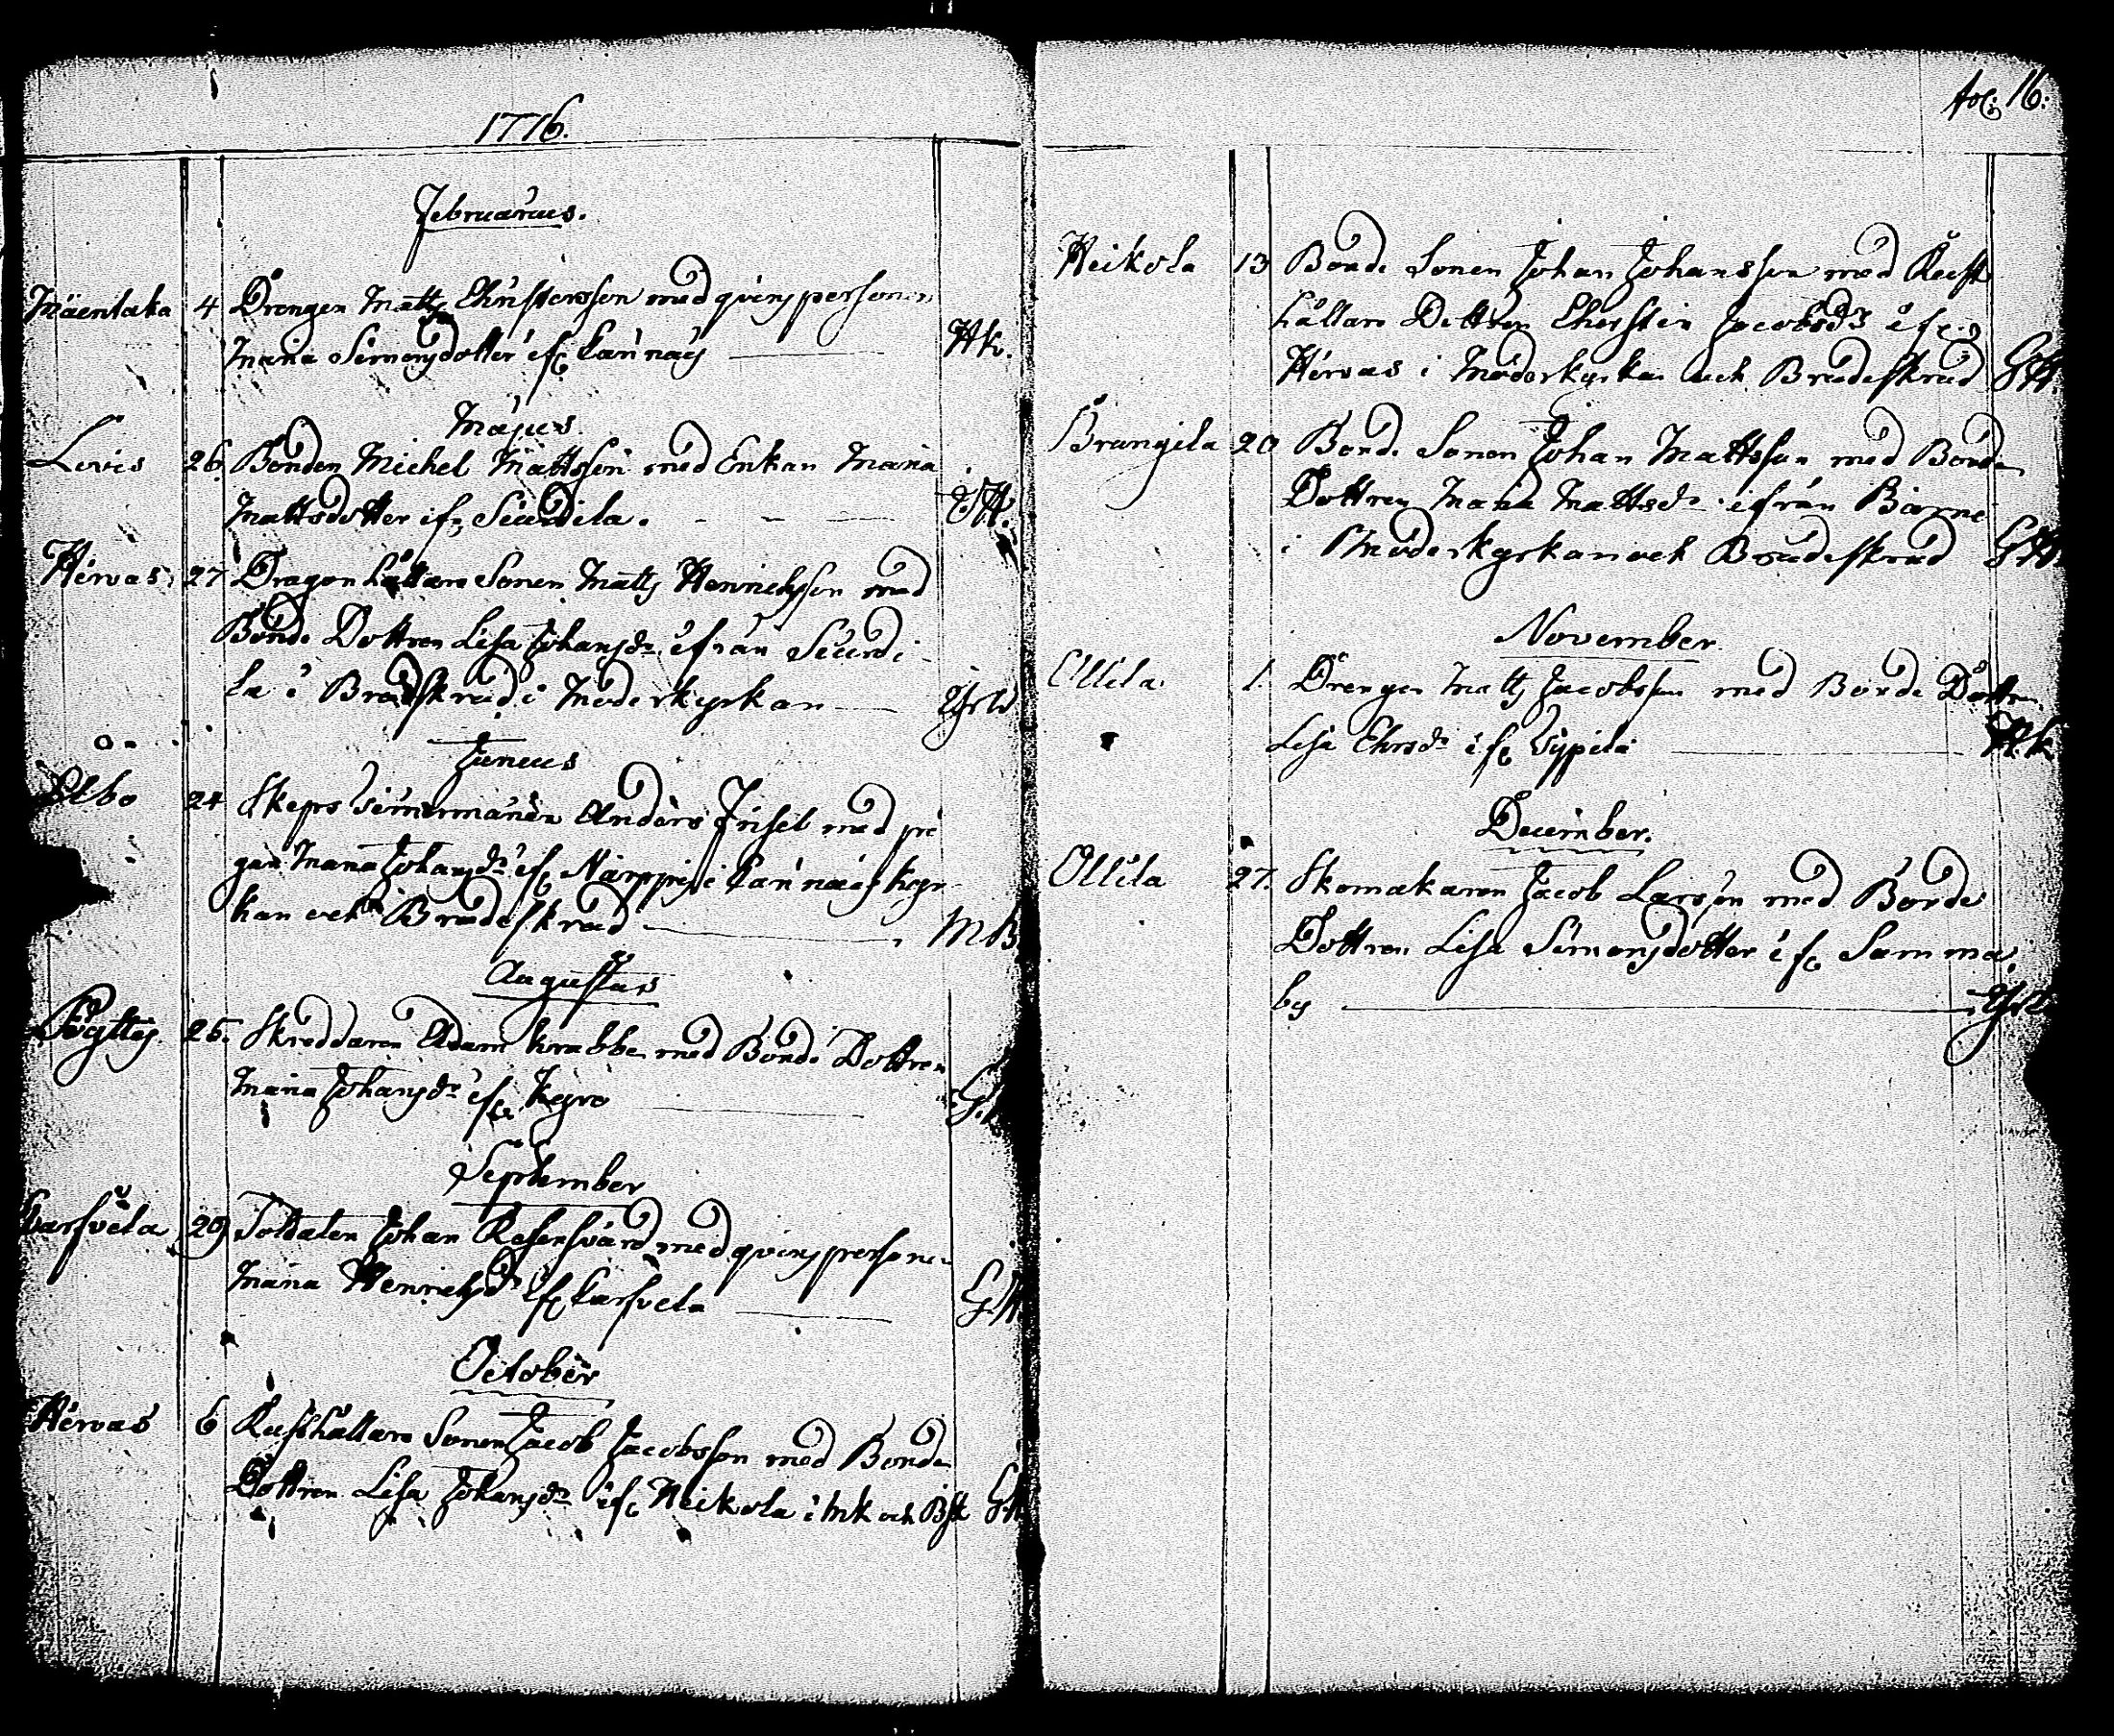 1776.
Februarius.
Mäenlaka 4 Drengen Matts Christersson med qvins personen
Maria Simonsdotter if: Pannais Hk.
Majus.
Levis 26 Bonden Michel Mattsson med Enkan Maria
Mattsdotter if: Seurdila. GH.
Hérvas 27 Dragon hållare Sonen Matts Henrichsson med
Bonde Dottren Lisa Johansdr ifrån Seurdi
la i Brudskrud i Moderkyrkan
Junius
24 Skeps timermannen Anders Frisel med pi
gan Maria Johansdr if: Närppis i Pannais kyr
kan och Brudeskrud MB
Augustus
25. Skreddaren Adam Krabbe med Bonde Dottren
Maria Johansdr if: Kyrö
September
29 Soldaten Johan Rosensvärd med qvins personen
Maria Henrichsdr if: Karsvela GH
October
Hérvas 6 Rusthållare Sonen Jacob Jacobsson med Bonde
Dottren Lisa Johansdr if: Heikola i Mk och Bsk GH
fol: 16:
Heikola 13 Bonde Sonen Johan Johansson med Rust
hållare Dottren Cherstin Jacobsdr if:
Hérvas i Moderkyrkan och Brudeskrud GH.
Brangila 20 Bonde Sonen Johan Mattsson med Bonde
Dottren Maria Mattsdr ifrån Bierne
i Moderkyrkan och Brudeskrud GH.
November
Ollila 1. Drengen Matts Jacobsson med Bonde Dottren
Lisa Ehrsdr if: Vyppilä Hk
December.
Ollila 27. Skomakaren Jacob Larsson med Bonde
Dottren Lisa Simonsdotter if: Samma
by